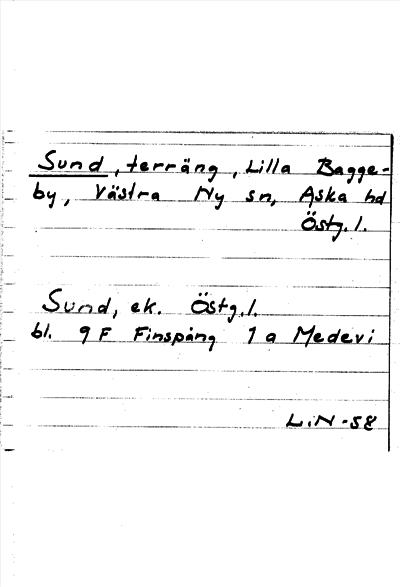 Sund, terräng, Lilla Bagge-
by, Västra Ny sn, Aska hd
Östg.l.
Sund, ek. Östg.l.
bl. 9 F Finspång 1 a Medevi
L.N -58